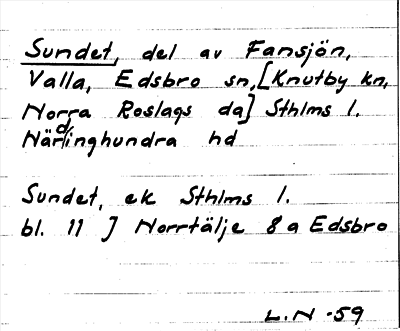 Sundet, del av Fansjön,
Valla, Edsbro sn, [Knutby kn,
Norra Roslags da] Sthlms l.
Närdinghundra hd
Sundet, ek Sthlms l.
bl. 11 J Norrtälje 8 a Edsbro
L.N -59